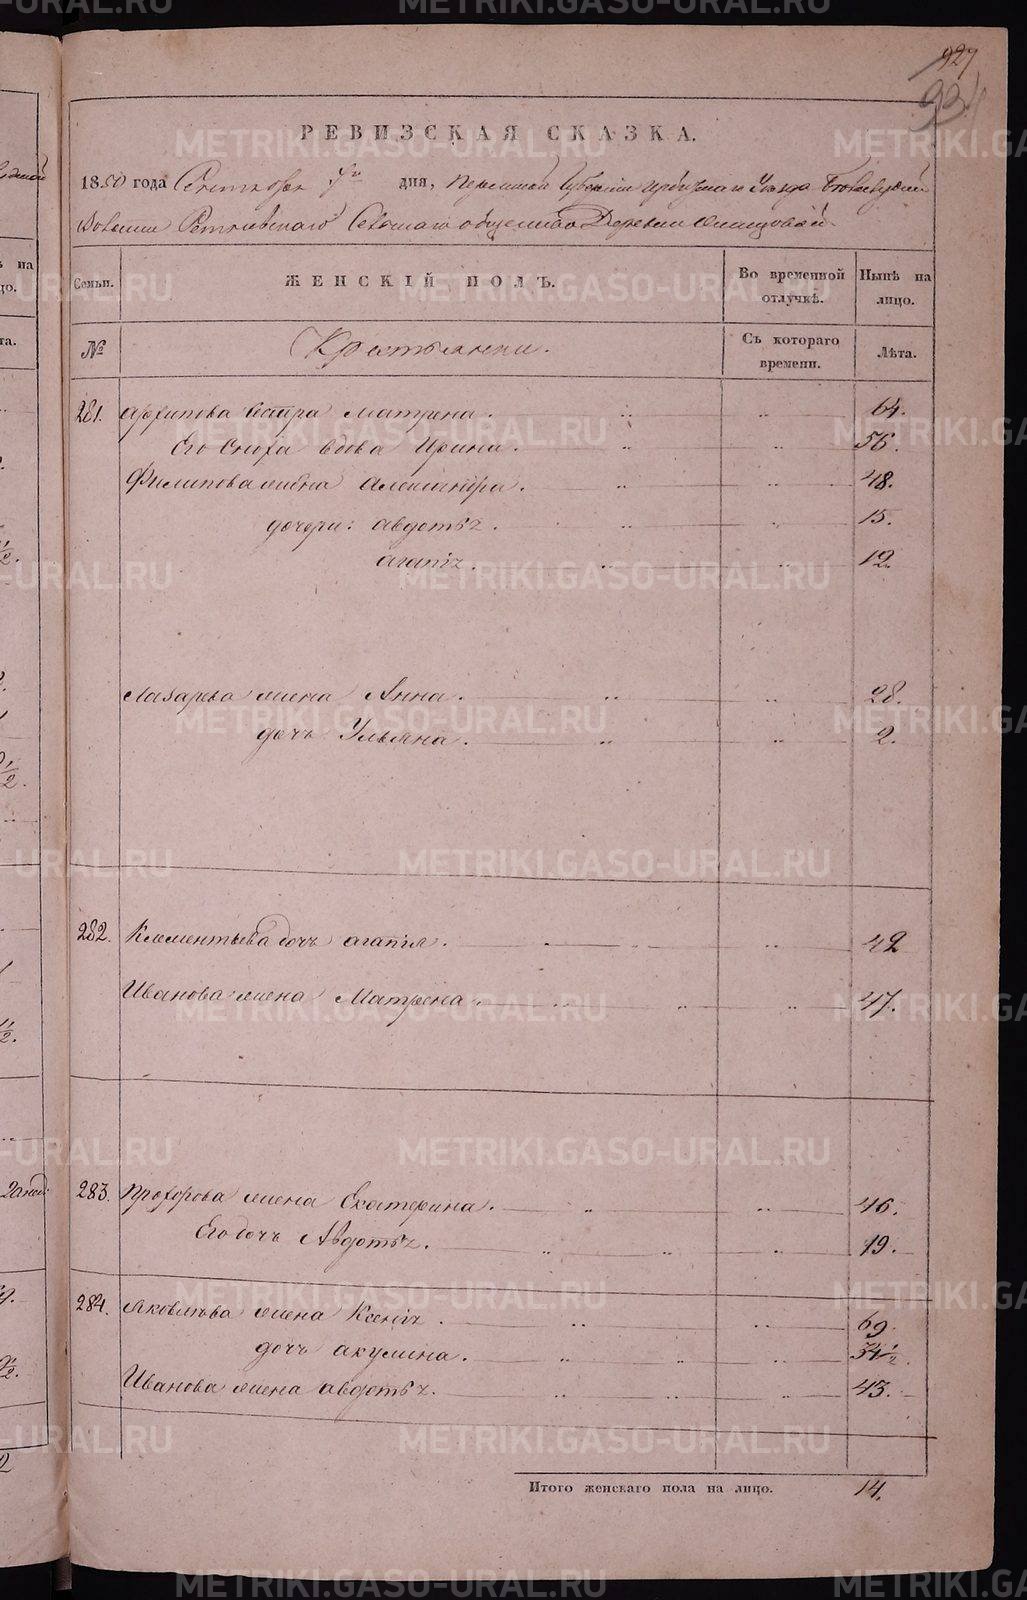 927
934
РЕВИЗСКАЯ СКАЗКА.
1850 года Сентября 7го дня, Пермской Губернии Ирбитскаго Уезда
Волости Сельскаго общества Деревни
Семьи.
ЖЕНСКІЙ ПОЛЪ.
Во временной отлучкѣ.
Нынѣ на лицо.
№
Крестьянки.
Съ котораго времени.
Лѣта.
281. Архипова Сестра Матрена. 64.
Его Сноха вдова Ирина. 56.
Филипова жена Александра. 48.
дочери: Авдотья. 15.
Агапія. 12.
Лазарева жена Анна. 28.
дочь Ульяна. 2.
282. Клементьева дочь Агапія. 42
Иванова жена Матрена. 47.
283. Прохорова жена Екатерина. 46.
Его дочь Авдотья. 19.
284. Яковлева жена Ксенія. 69.
дочь Акулина. 34 1/2.
Иванова жена Авдотья. 43.
Итого женскаго пола на лицо. 14.
METRIKI.GASO-URAL.RU